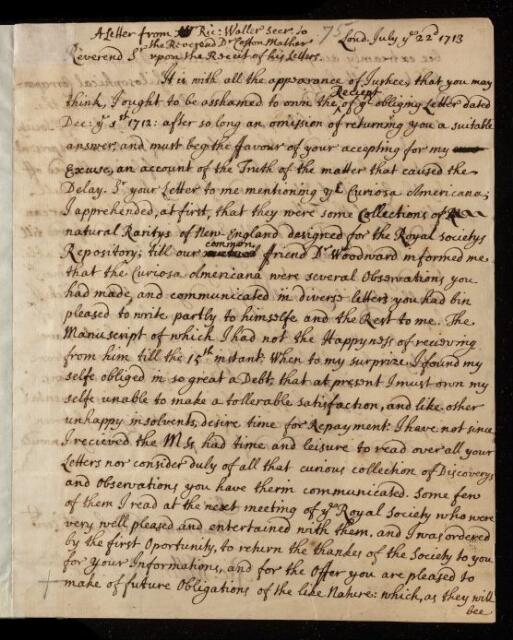 A Letter from Ric: Waller Secr. to
the Reverend Dr Cotton Mather
upon the Receit of his Letters.
75
Lond. July ye 22d 1713
Reverend Sr
It is with all the appearance of Justice, that you may
think, I ought to be asshamed to own the Reciept of yr obliging Letter dated
Dec: ye 1st 1712: after so long an omission of returning you a suitable
answer, and must beg the favour of your accepting for my
Excuse, an account of the Truth of the matter that caused the
Delay. Sr your Letter to me mentioning ye Curiosa Americana;
I apprehended, at first, that they were some Collections of
natural Raritys of New-England designed for the Royal Societys
Repository; till our common friend Dr Woodward informed me
that the Curiosa Americana were several Observations you
had made, and communicated in diverse letters you had bin
pleased to write partly to himselfe and the Rest to me. The
Manuscript of which I had not the Happyness of recieving
from him till the 15th instant; When to my surprize I found my
selfe obliged in so great a Debt, that at present I must own my
selfe unable to make a tollerable satisfaction, and like other
unhappy insolvents, desire time for Repayment: I have not since
I recieved the MSs had time and leisure to read over all your
Letters nor consider duly of all that curious collection of Discoverys
and Observations you have therin communicated. Some few
of them I read at the next meeting of ye Royal Society who were
very well pleased and entertained with them, and I was ordered
by the first Oportunity, to return the thankes of the Society to you
for your Informations, and for the Offer you are pleased to
make of future Obligations of the like Nature: which, as they will
bee